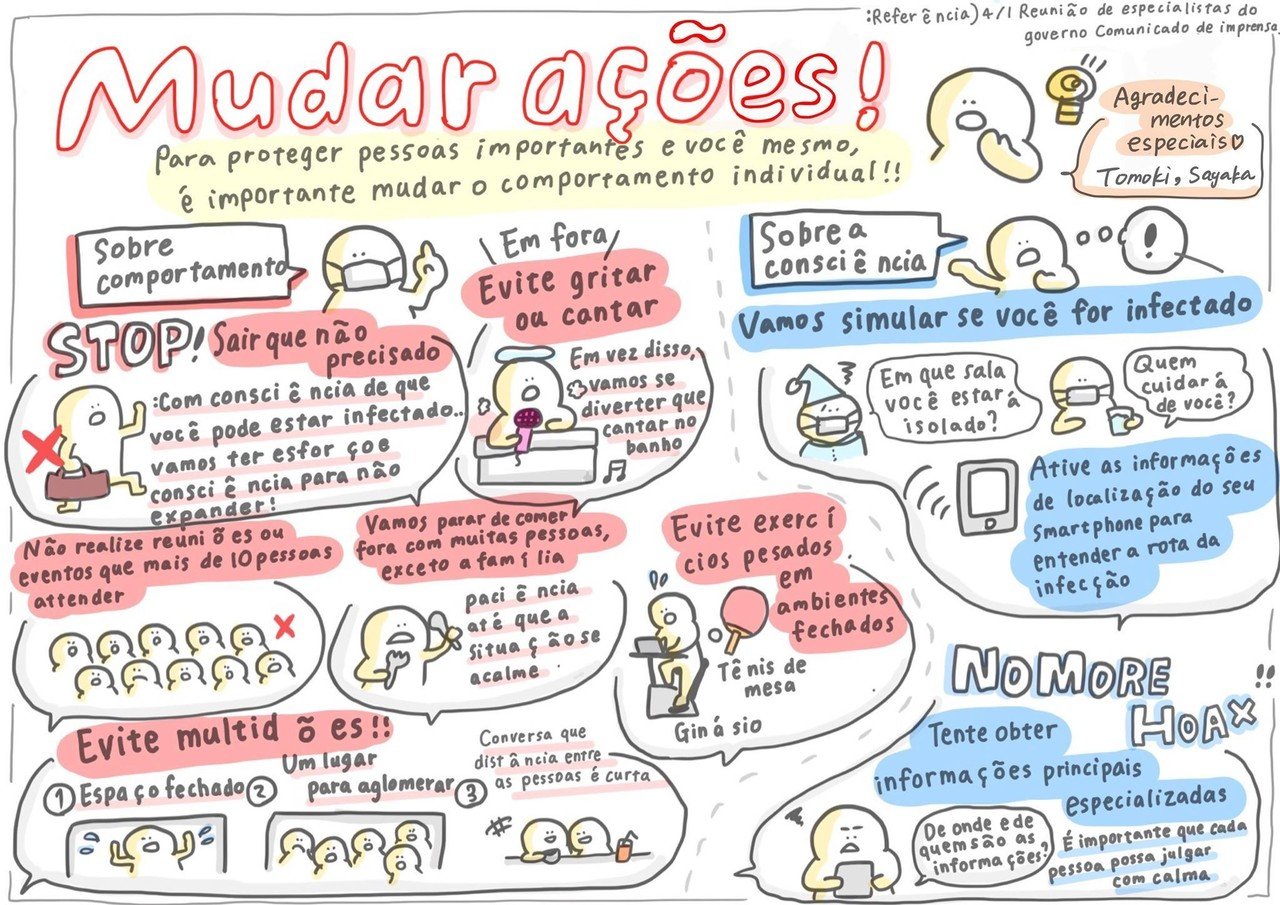 :Referência) 4/1 Reunião de especialistas do
governo Comunicado de imprensa
Mudar ações!
Para proteger pessoas importantes e você mesmo,
é importante mudar o comportamento individual!!
Agradeci-
mentos
especiais♡
Tomoki, Sayaka
Sobre
comportamento
STOP! Sair que não
precisado
:Com consciência de que
você pode estar infectado..
vamos ter esforço e
consciência para não
expander!
Em fora
Evite gritar
ou cantar
Em vez disso,
vamos se
diverter que
cantar no
banho
Não realize reuniões ou
eventos que mais de 10 pessoas
attender
Vamos parar de comer
fora com muitas pessoas,
exceto a família
paciência
até que a
situação se
acalme
Evite exercí
cios pesados
em
ambientes
fechados
Tênis de
mesa
Ginásio
Evite multidões!!
① Espaço fechado
② Um lugar
para aglomerar
③ Conversa que
distância entre
as pessoas é curta
Sobre a
consciência
!
Vamos simular se você for infectado
Em que sala
você estará
isolado?
Quem
cuidará
de você?
Ative as informações
de localização do seu
smartphone para
entender a rota da
infecção
NO MORE
HOAX!!
Tente obter
informações principais
especializadas
De onde e de
quem são as
informações?
É importante que cada
pessoa possa julgar
com calma